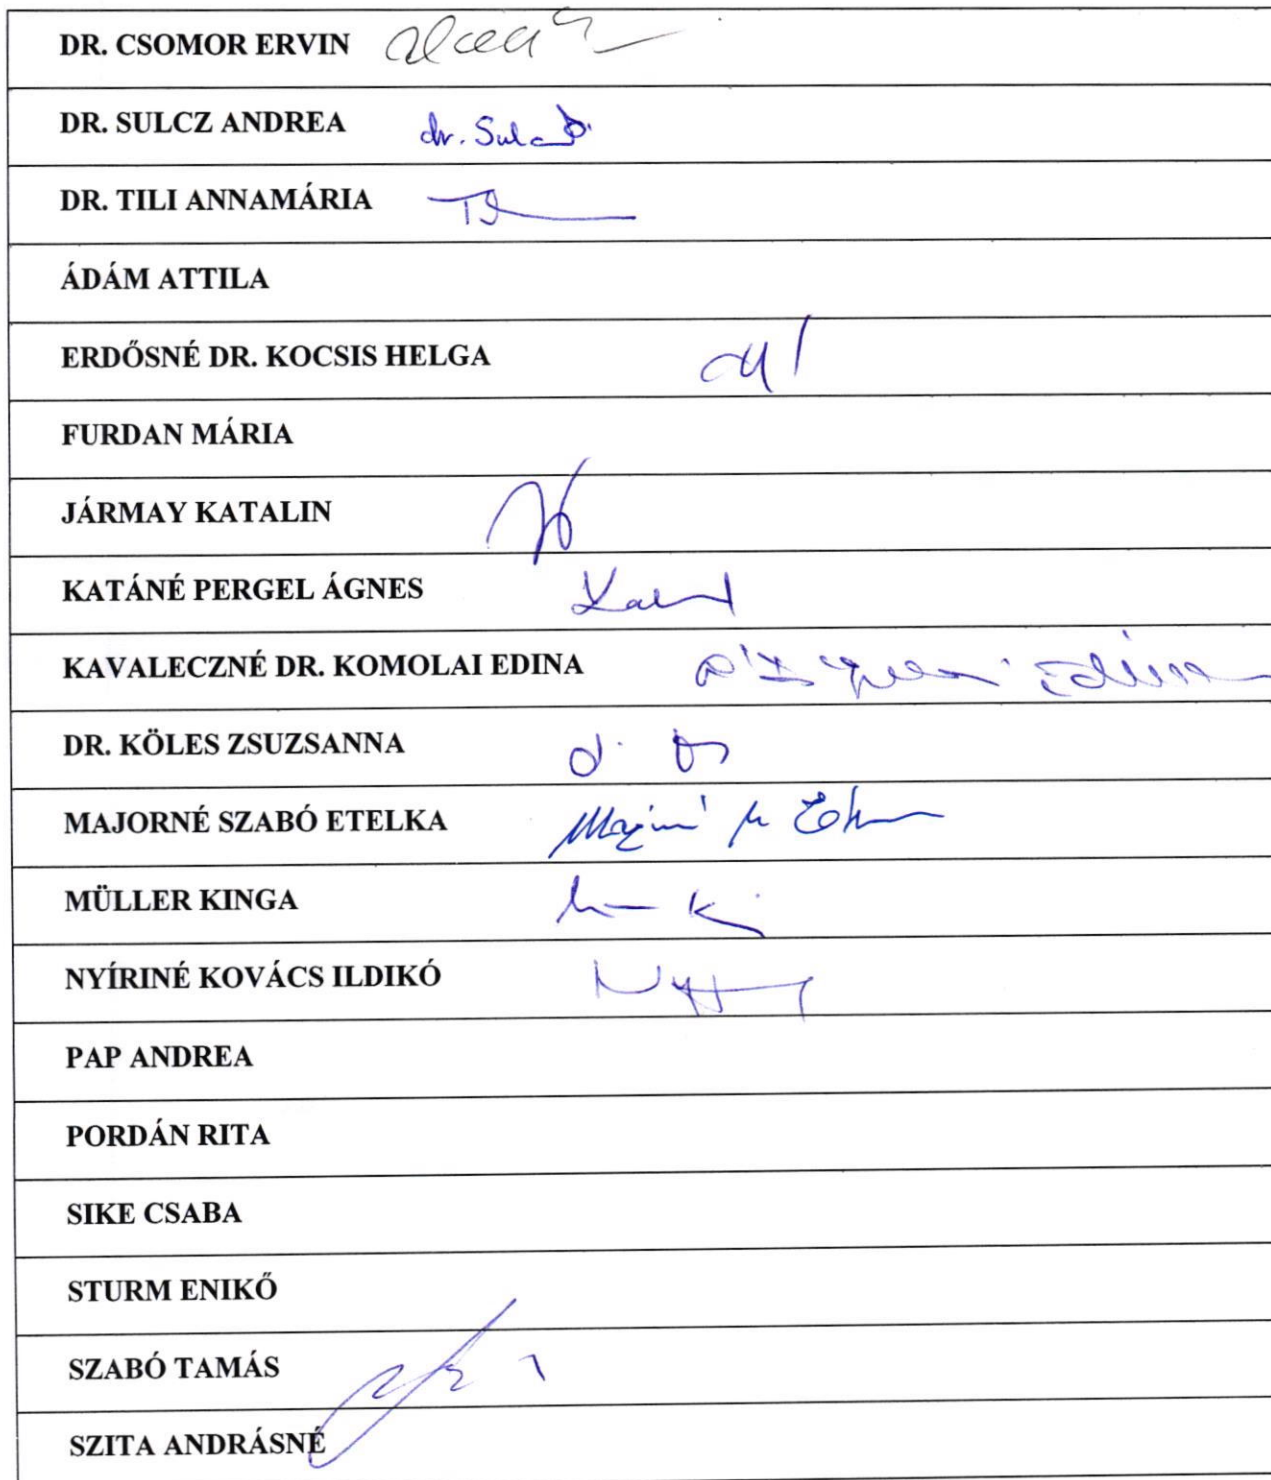 DR. CSOMOR ERVIN
DR. SULCZ ANDREA dr. Sulcz
DR. TILI ANNAMÁRIA
ÁDÁM ATTILA
ERDŐSNÉ DR. KOCSIS HELGA
FURDAN MÁRIA
JÁRMAY KATALIN
KATÁNÉ PERGEL ÁGNES
KAVALECZNÉ DR. KOMOLAI EDINA
DR. KÖLES ZSUZSANNA
MAJORNÉ SZABÓ ETELKA
MÜLLER KINGA
NYÍRINÉ KOVÁCS ILDIKÓ
PAP ANDREA
PORDÁN RITA
SIKE CSABA
STURM ENIKŐ
SZABÓ TAMÁS
SZITA ANDRÁSNÉ